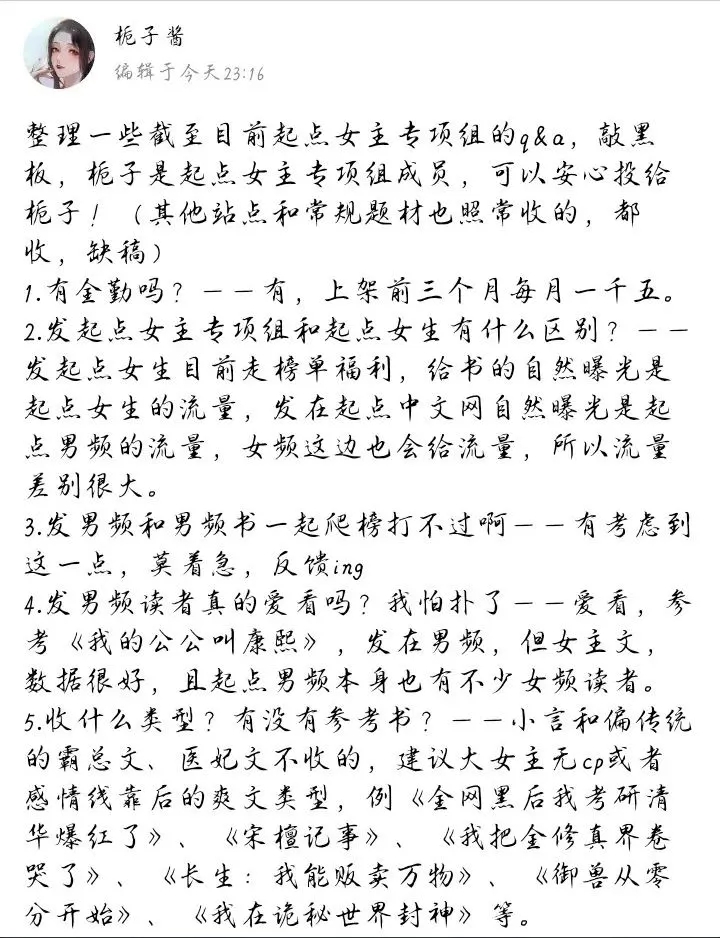 栀子酱
编辑于今天23:16
整理一些截至目前起点女主专项组的q&a，敲黑
板，栀子是起点女主专项组成员，可以安心投给
栀子！（其他站点和常规题材也照常收的，都
收，缺稿）
1.有全勤吗？——有，上架前三个月每月一千五。
2.发起点女主专项组和起点女生有什么区别？——
发起点女生目前走榜单福利，给书的自然曝光是
起点女生的流量，发在起点中文网自然曝光是起
点男频的流量，女频这边也会给流量，所以流量
差别很大。
3.发男频和男频书一起爬榜打不过啊——有考虑到
这一点，莫着急，反馈ing
4.发男频读者真的爱看吗？我怕扑了——爱看，参
考《我的公公叫康熙》，发在男频，但女主文，
数据很好，且起点男频本身也有不少女频读者。
5.收什么类型？有没有参考书？——小言和偏传统
的霸总文、医妃文不收的，建议大女主无cp或者
感情线靠后的爽文类型，例《全网黑后我考研清
华爆红了》、《宋檀记事》、《我把全修真界卷
哭了》、《长生：我能贩卖万物》、《御兽从零
分开始》、《我在诡秘世界封神》等。